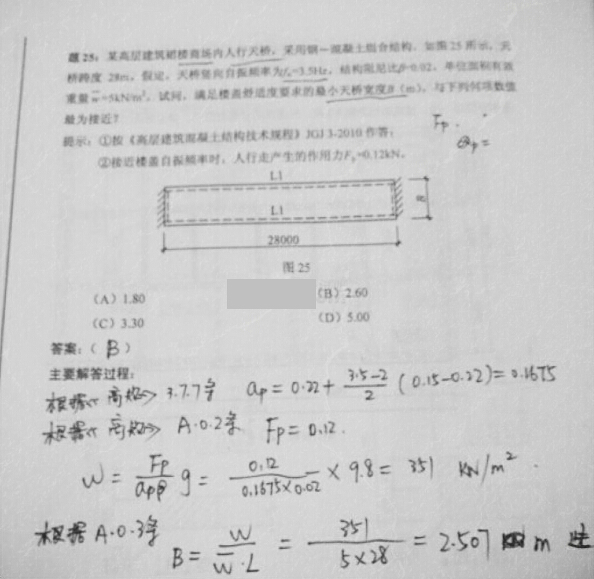 题25:某高层建筑裙楼商场内人行天桥,采用钢-混凝土组合结构,如图25所示,天
桥跨度28m,假定,天桥竖向自振频率为fₙ=3.5Hz,结构阻尼比β=0.02,单位面积有效
重量w̄=5kN/m²,试问,满足楼盖舒适度要求的最小天桥宽度B(m),与下列何项数值
最为接近?
提示:①按《高层建筑混凝土结构技术规程》JGJ 3-2010作答;
②接近楼盖自振频率时,人行走产生的作用力Fₚ=0.12kN。
Fp.
ap=
L1
L1
B
28000
图25
(A)1.80 (B)2.60
(C)3.30 (D)5.00
答案:( B )
主要解答过程:
根据《高规》3.7.7条 ap = 0.22 + (3.5-2)/2 (0.15-0.22) = 0.1675
根据《高规》A.0.2条 Fp = 0.12.
W = Fp/(apβ) g = 0.12/(0.1675×0.02) × 9.8 = 351 KN/m².
根据A.0.3条
B = W/(w̄·L) = 351/(5×28) = 2.507 m